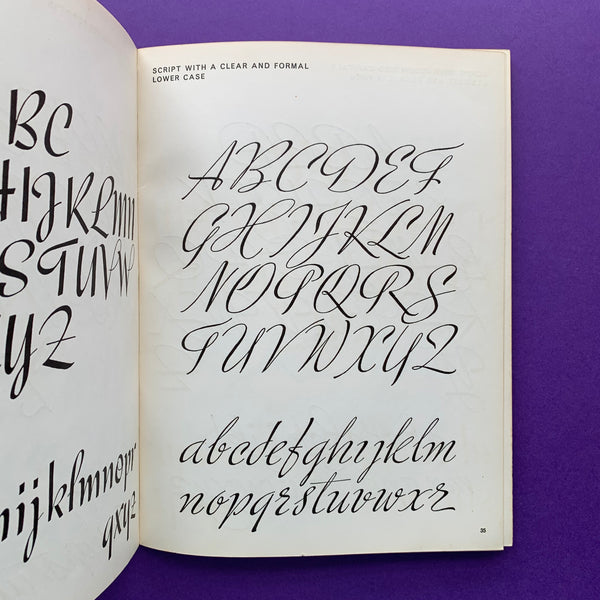 BC
HIJKLM
STUVW
YZ
ijklmnopr
qxyz
SCRIPT WITH A CLEAR AND FORMAL
LOWER CASE
ABCDEF
GHIJKLM
NOPQRS
TUVWXYZ
abcdefghijklm
nopqrstuvwxz
35